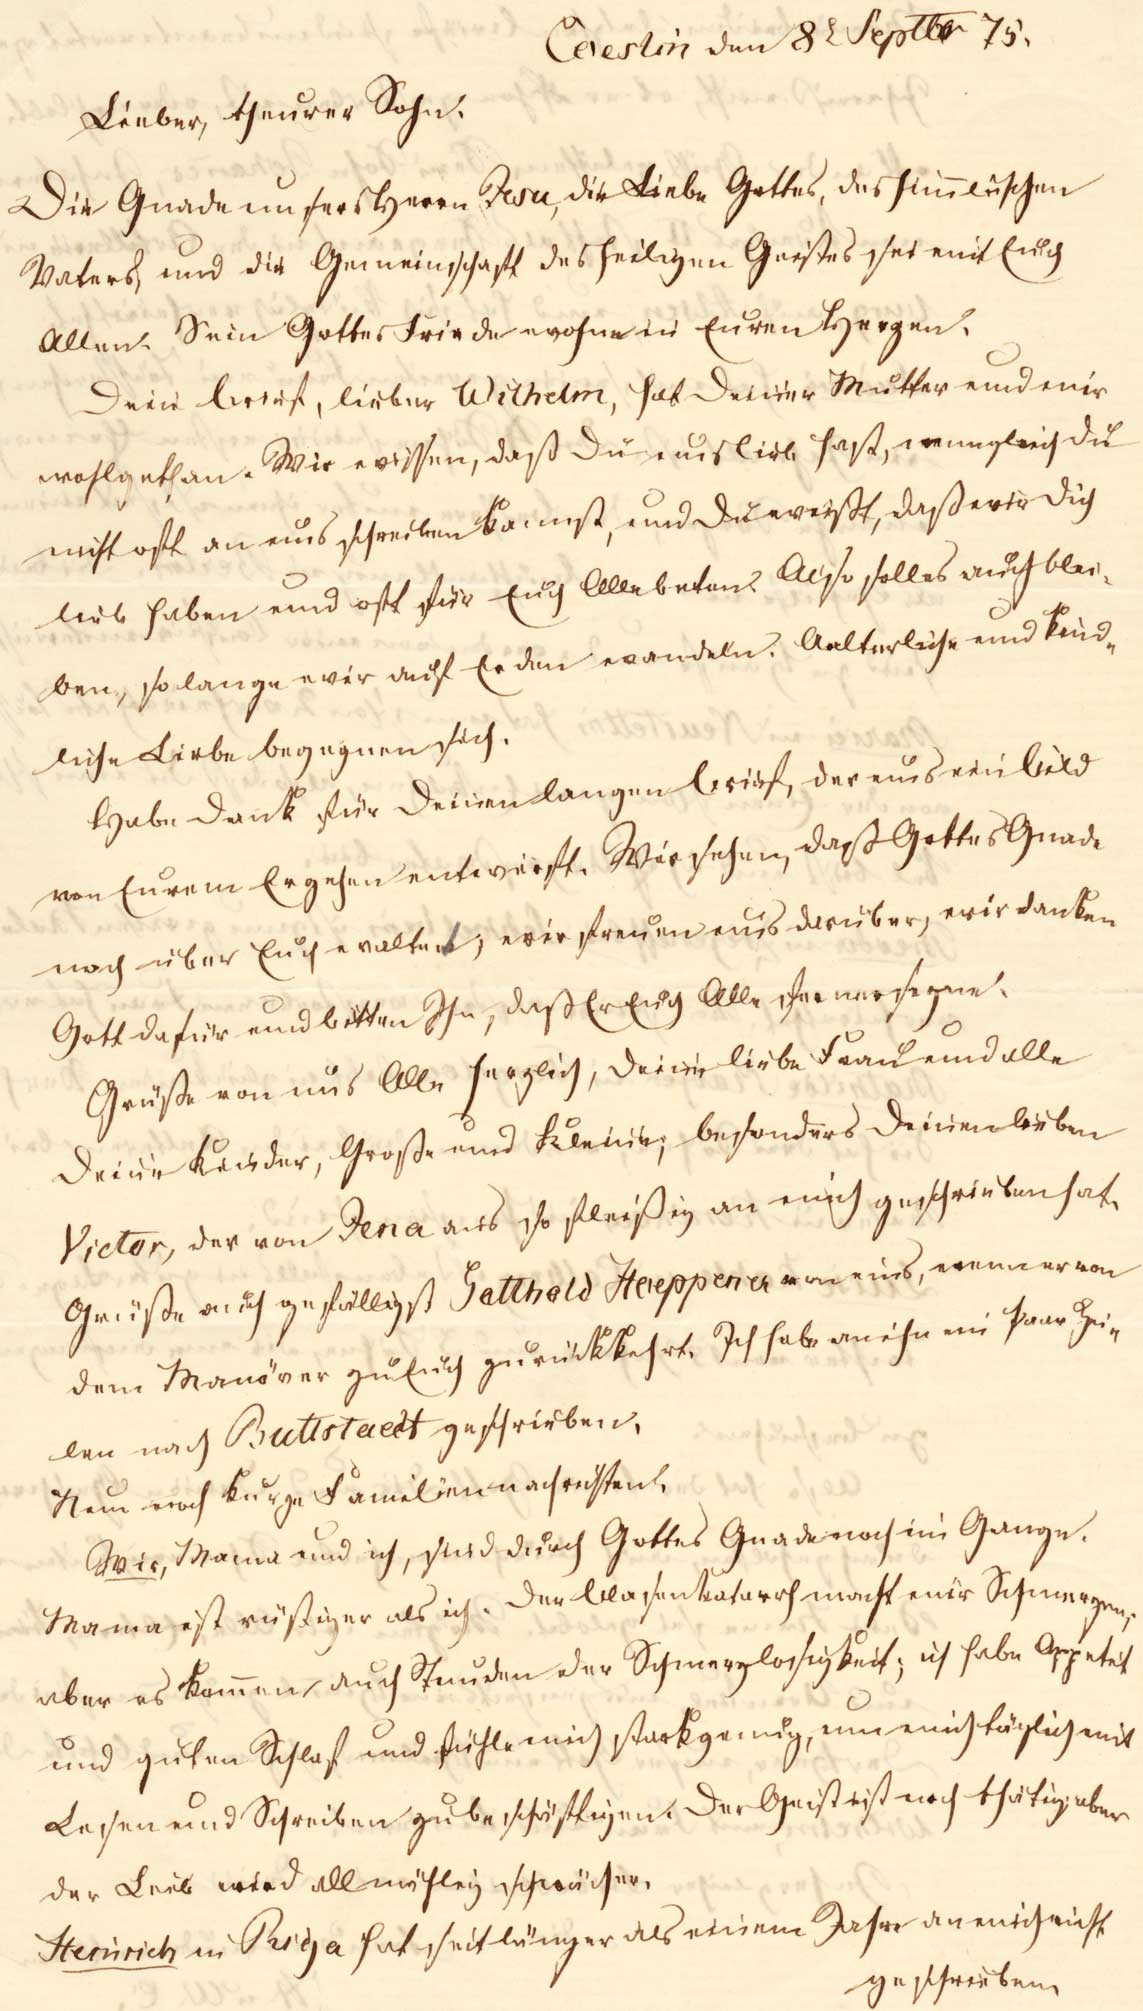 Coeslin den 8t Septbr 75.
Lieber, theurer Sohn!
Die Gnade unsers Herrn Jesu, die Liebe Gottes, des himmlischen
Vaters, und die Gemeinschaft des heiligen Geistes sei mit Euch
Allen. Sein Gottes Friede wohne in Euren Herzen.
Dein Brief, lieber Wilhelm, hat Deiner Mutter und mir
wohlgethan. Wir wissen, daß Du uns lieb hast, wenngleich Du
nicht oft an uns schreiben kannst, und Du weißt, daß wir Dich
lieb haben und oft für Euch Alle beten. Also soll es auch blei-
ben, so lange wir auf Erden wandeln. Aelterliche und kind-
liche Liebe begegnen sich.
Habe Dank für Deinen langen Brief, der uns ein Bild
von Eurem Ergehen entwirft. Wir sehen, daß Gottes Gnade
noch über Euch waltet, wir freuen uns darüber, wir danken
Gott dafür und bitten Ihn, daß Er Euch Alle ferner segne.
Grüße von uns Alle herzlich, Deine liebe Frau und alle
Deine Kinder, Große und Kleine, besonders Deinen lieben
Victor, der von Jena aus so fleißig an mich geschrieben hat.
Grüße auch gefälligst Gotthold Hoeppener von uns, wenn er von
dem Manöver zu Euch zurückkehrt. Ich habe an ihn ein Paar Zei-
len nach Buttstaedt geschrieben.
Nun noch kurze Familiennachrichten.
Wir, Mama und ich, sind durch Gottes Gnade noch im Gange.
Mama ist rüstiger als ich. Der Blasenkatarrh macht mir Schmerzen,
aber es kommen auch Stunden der Schmerzlosigkeit; ich habe Appetit
und guten Schlaf und fühle mich stark genug, um mich täglich mit
Lesen und Schreiben zu beschäftigen. Der Geist ist noch thätig, aber
der Leib wird allmählig schwächer.
Heinrich in Riga hat seit länger als einem Jahre an mich nicht
geschrieben.